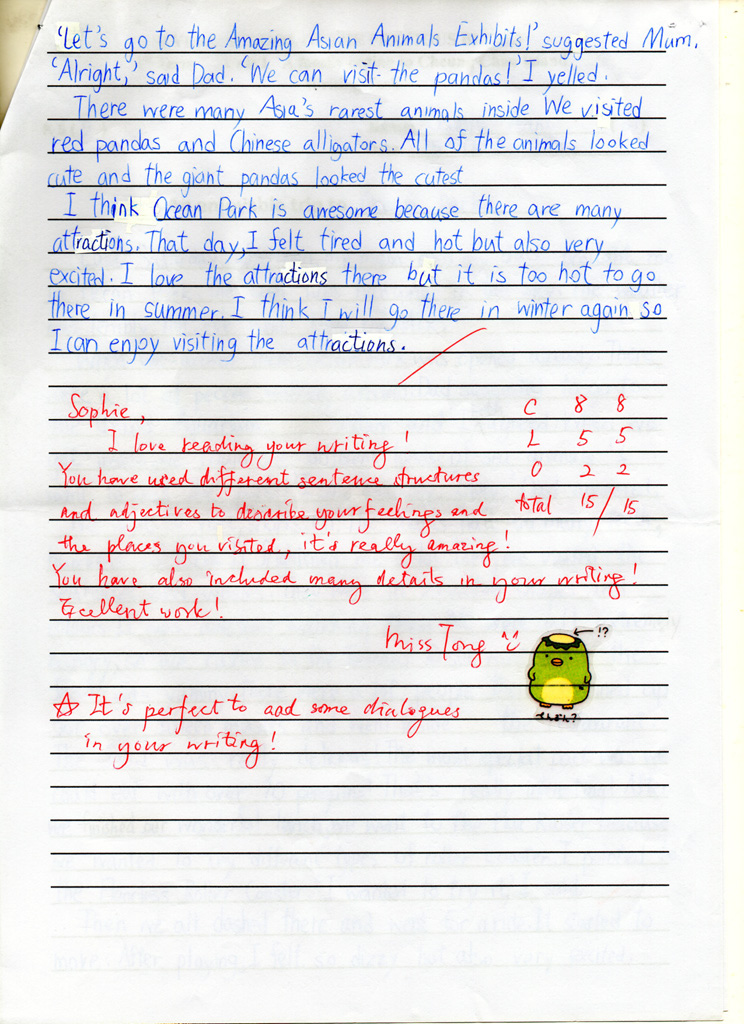 'Let's go to the Amazing Asian Animals Exhibits!' suggested Mum.
'Alright,' said Dad. 'We can visit the pandas!' I yelled.
There were many Asia's rarest animals inside We visited
red pandas and Chinese alligators. All of the animals looked
cute and the giant pandas looked the cutest
I think Ocean Park is awesome because there are many
attractions. That day, I felt tired and hot but also very
excited. I love the attractions there but it is too hot to go
there in summer. I think I will go there in winter again so
I can enjoy visiting the attractions.
Sophie, C 8 8
I love reading your writing! L 5 5
You have used different sentence structures O 2 2
and adjectives to describe your feelings and total 15/15
the places you visited, it's really amazing!
You have also included many details in your writing!
Excellent work!
Miss Tong
!?
☆ It's perfect to add some dialogues
in your writing!